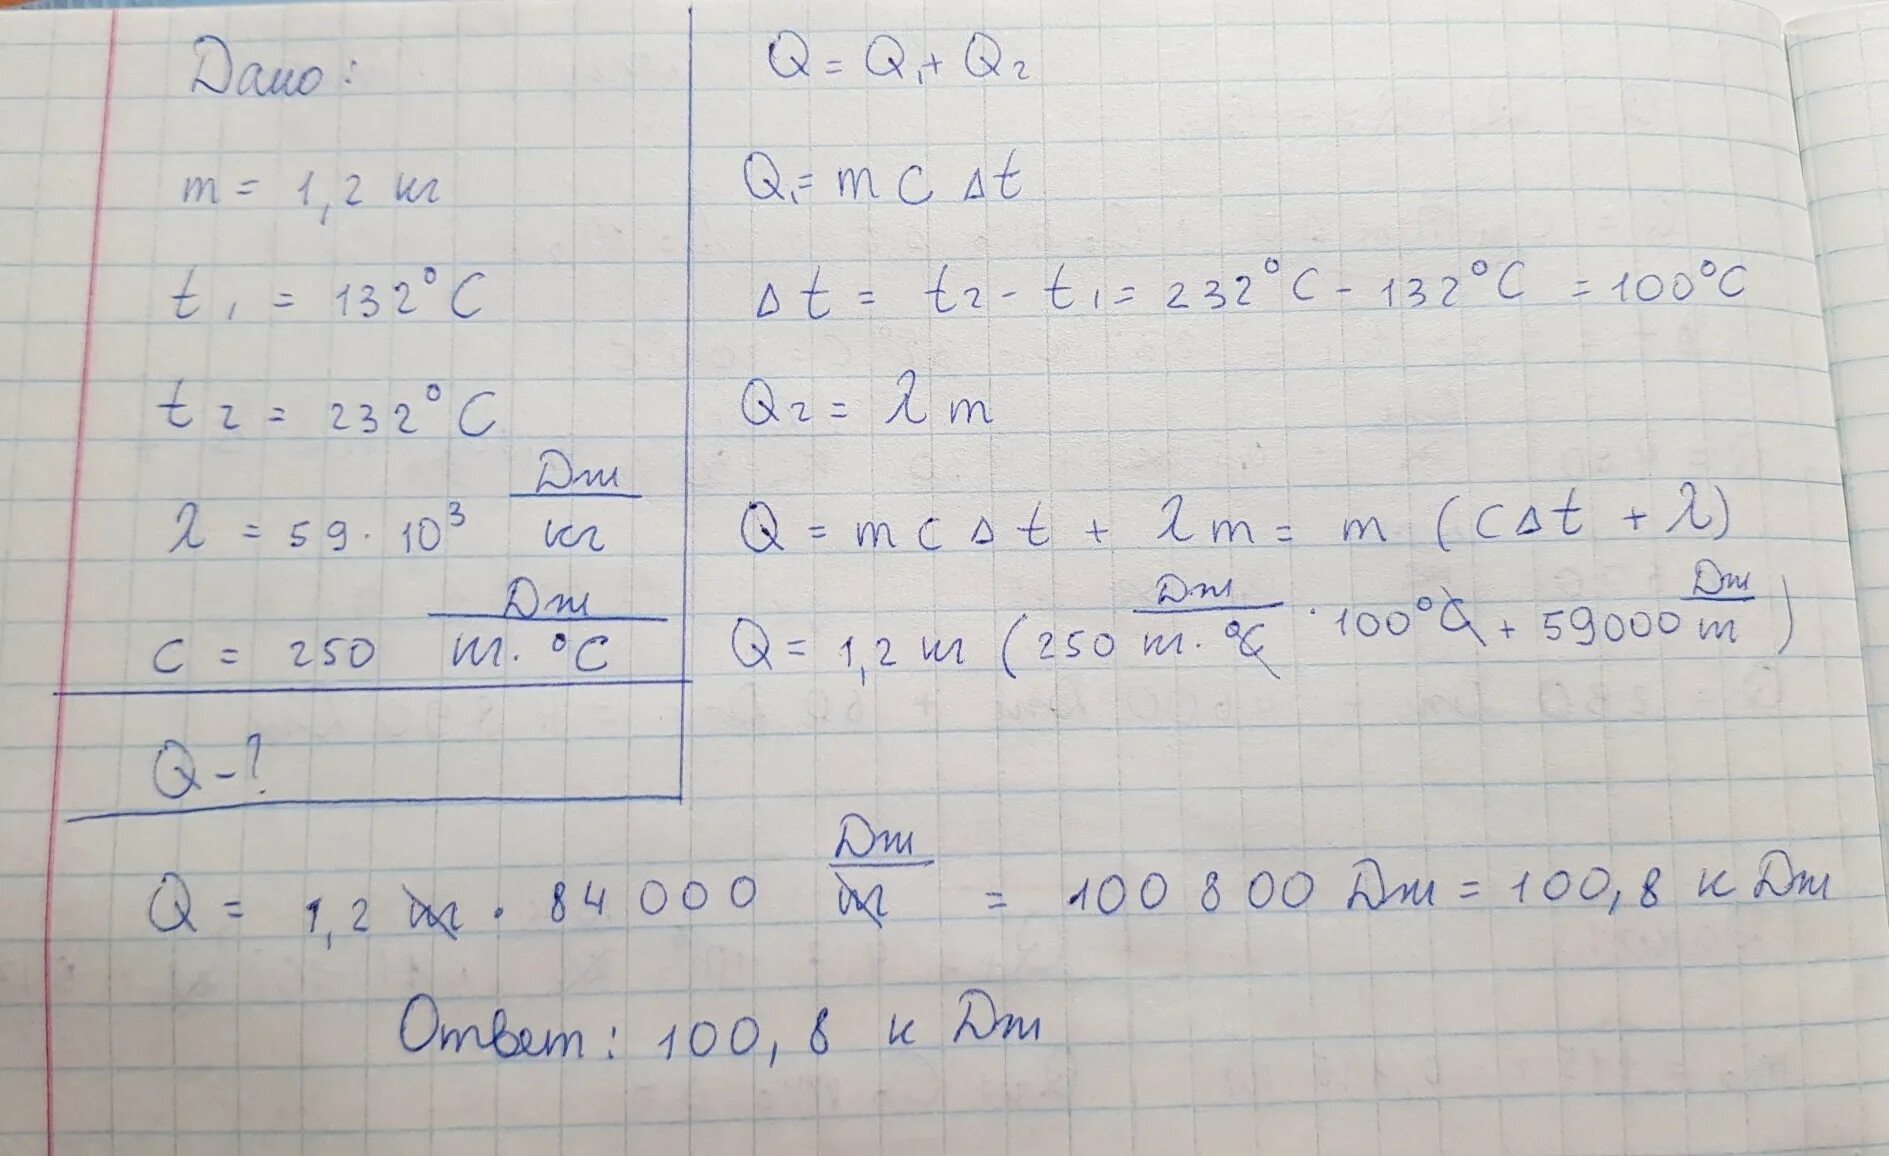 Дано:
m = 1,2 кг
t₁ = 132°C
t₂ = 232°C
λ = 59·10³ Дж/кг
c = 250 Дж/кг·°C
Q-?
Q = Q₁ + Q₂
Q₁ = m c Δt
Δt = t₂ - t₁ = 232°C - 132°C = 100°C
Q₂ = λ m
Q = m c Δt + λ m = m (c Δt + λ)
Q = 1,2 кг (250 Дж/кг·°C · 100°C + 59000 Дж/кг)
Q = 1,2 кг · 84000 Дж/кг = 100 800 Дж = 100,8 кДж
Ответ: 100,8 кДж